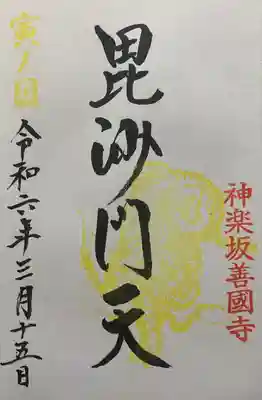 神楽坂善國寺
毘沙門天
寅ノ日
令和六年三月十五日